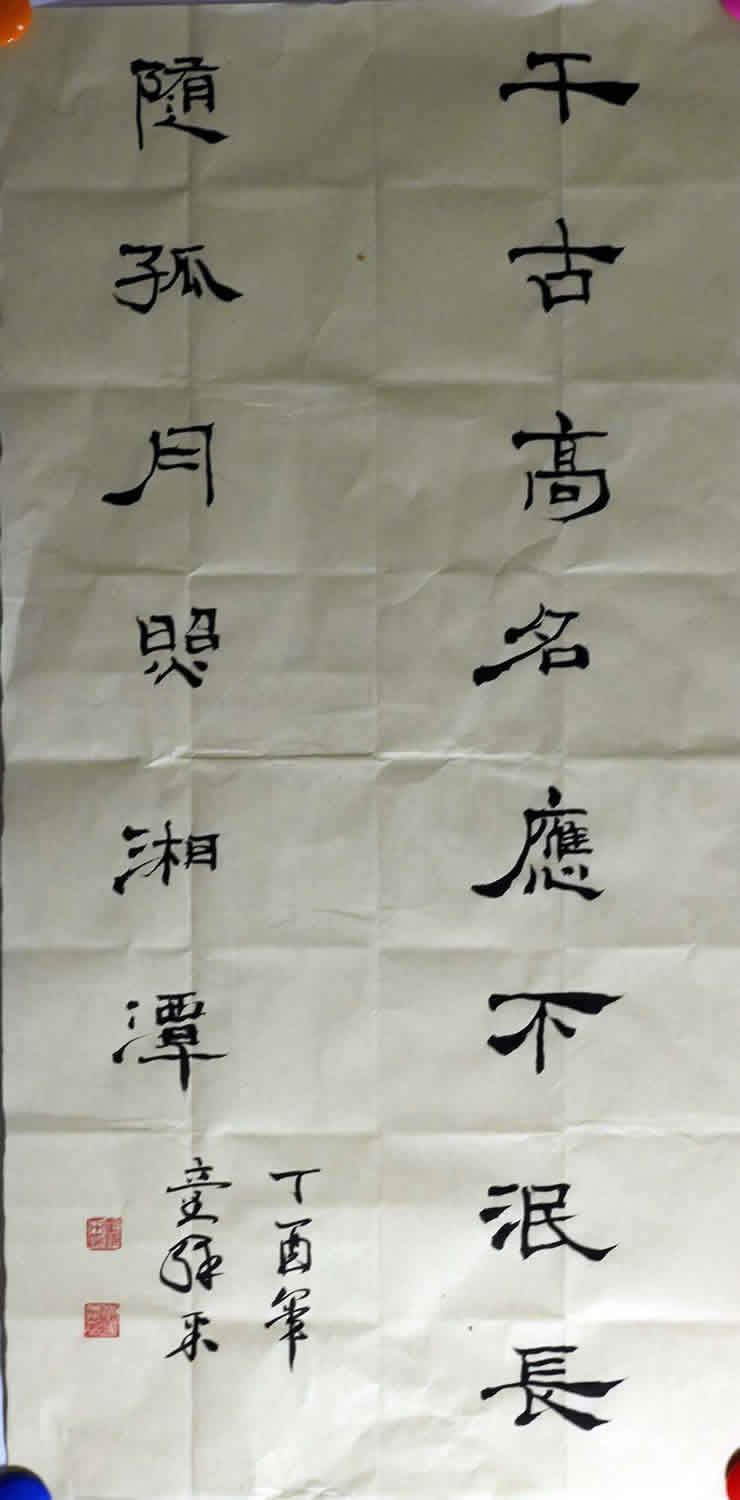 千古高名應不泯長
隨孤月照湘潭
丁酉年
童